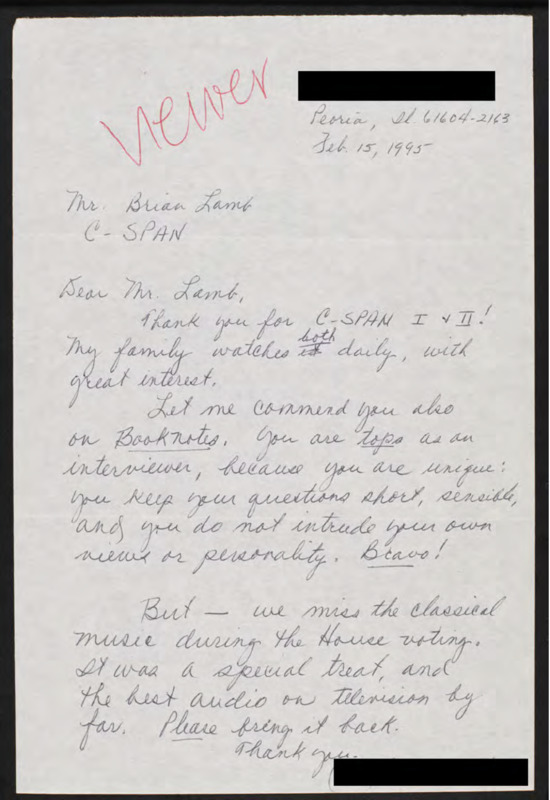 viewer
Peoria, Il 61604-2163
Feb. 15, 1995
Mr. Brian Lamb
C-SPAN
Dear Mr. Lamb,
Thank you for C-SPAN I & II!
My family watches both daily, with
great interest.
Let me commend you also
on Booknotes. You are tops as an
interviewer, because you are unique:
you keep your questions short, sensible,
and you do not intrude your own
views or personality. Bravo!
But — we miss the classical
music during the House voting.
It was a special treat, and
the best audio on television by
far. Please bring it back.
Thank you.